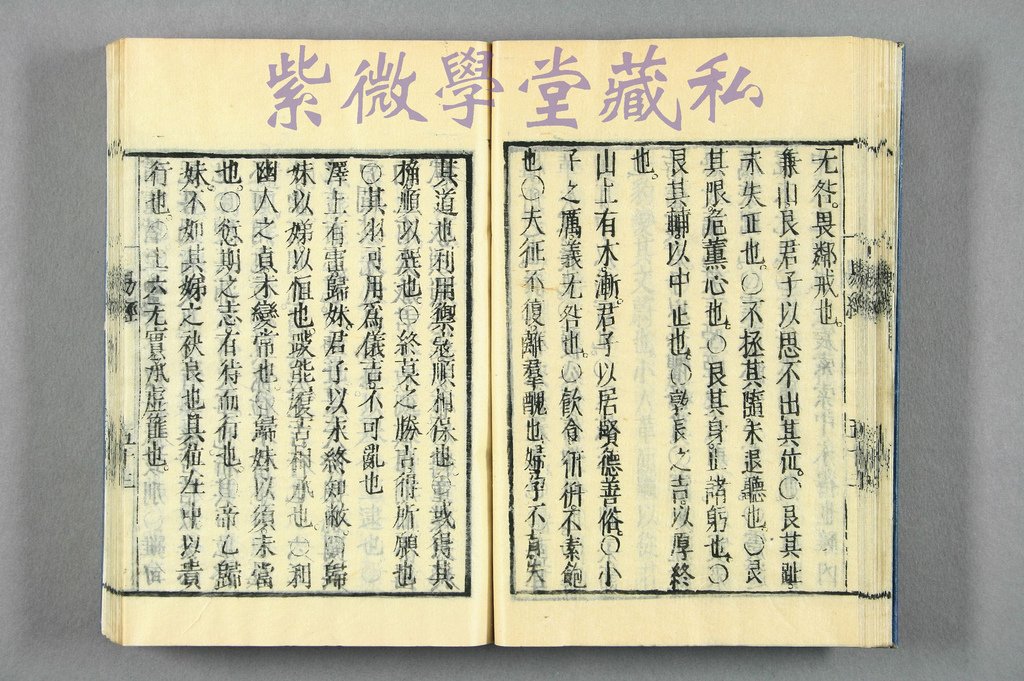 紫微學堂藏私
无咎。畏鄰戒也。
兼山艮君子以思不出其位。〇艮其趾
未失正也。〇不拯其隨未退聽也。〇艮
其限危薰心也。〇艮其身止諸躬也。〇
艮其輔以中正也。〇敦艮之吉以厚終
也。
山上有木漸。君子以居賢德善俗。〇小
子之厲義无咎也。〇飲食衎衎不素飽
也〇夫征不復離羣醜也。婦孕不育失
其道也利用禦寇順相保也〇或得其
桷順以巽也〇終莫之勝吉得所願也
〇其羽可用為儀吉不可亂也
澤上有雷歸妹。君子以永終知敝。〇歸
妹以娣以恒也跛能履吉相承也〇利
幽人之貞未變常也〇歸妹以須未當
也〇愆期之志有待而行也〇帝乙歸
妹。不如其娣之袂良也其位在中以貴
行也。〇上六无實承虛筐也。
易經
五十三